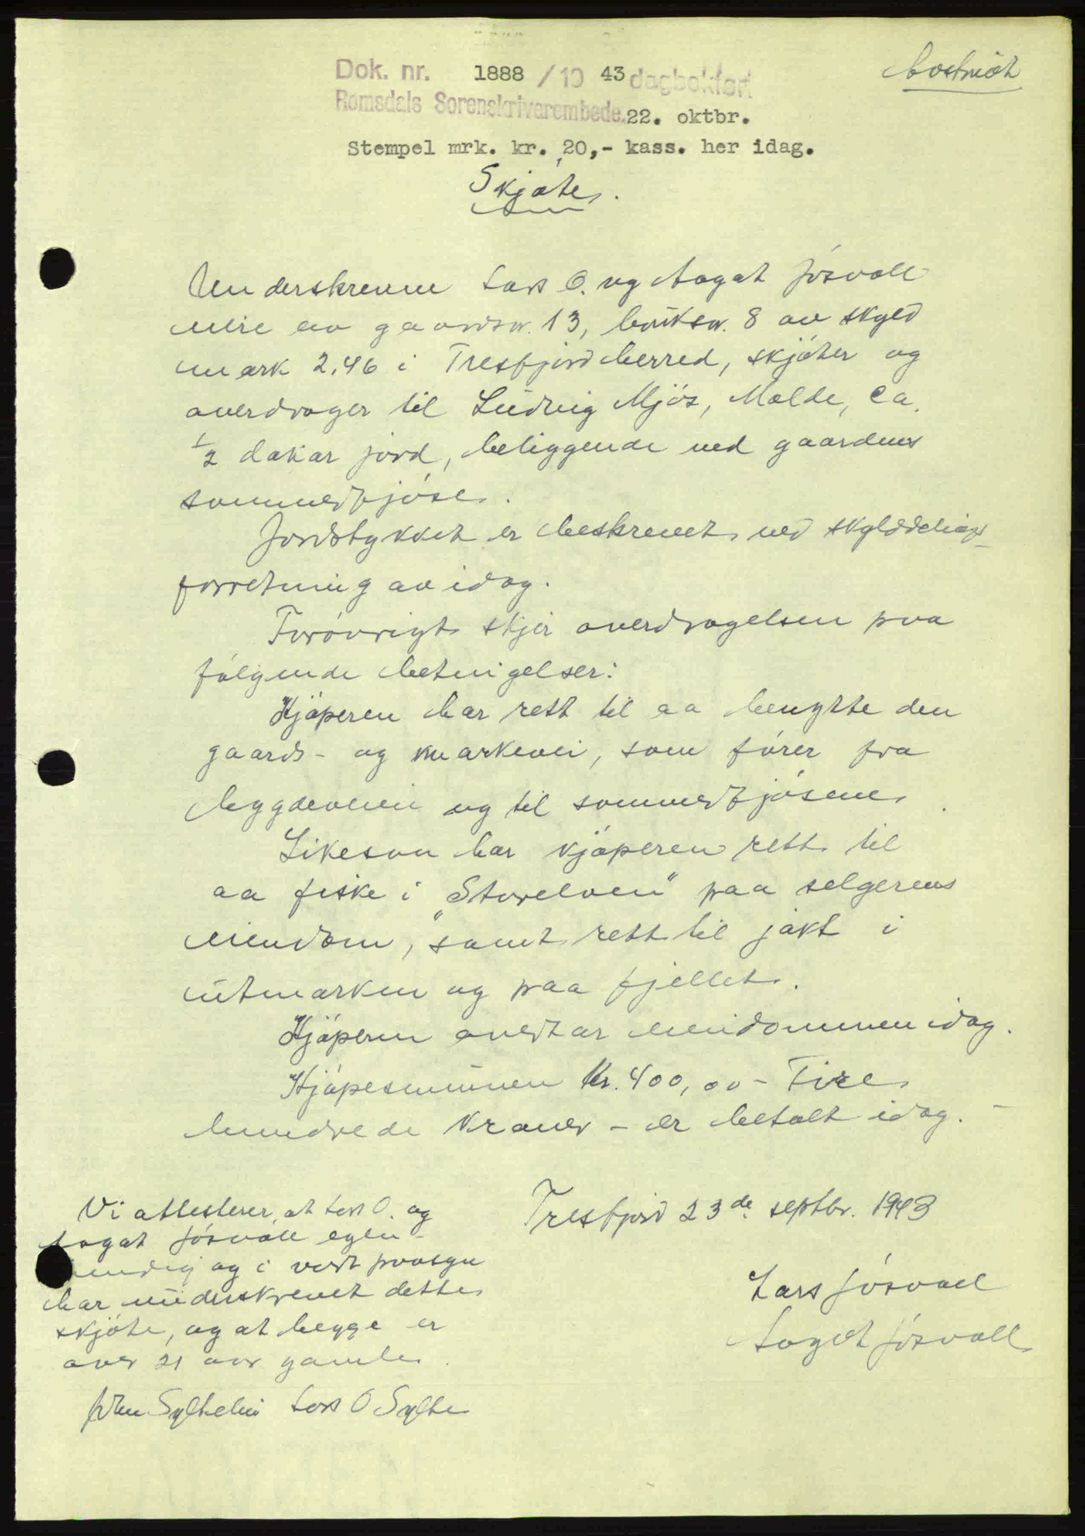 Dok. nr. 1888 / 19 43 dagbokført
Romsdals Sorenskriverembede. 22. oktbr.
Stempel mrk. kr. 20,- kass. her idag.
Skjøte.
Underskrevne Lars O. og Aagot Jösvoll
eiere av gaardsnr. 13, bruksnr. 8 av skyld
mark 2.46 i Tresfjord herred, skjöter og
overdrager til Ludvig Mjös, Molde, ca.
1/2 dekar jord, beliggende ved gaardens
sommerfjöse.
Jordstykket er beskrevet ved skylddelings-
forretning av idag.
Forövrigt skjer overdragelsen paa
fölgende betingelser:
Kjöperen har rett til aa benytte den
gaards- og markevei, som förer fra
bygdeveien og til sommerfjösene.
Likesom har kjöperen rett til
aa fiske i "Storelven" paa selgerens
eiendom, samt rett til jakt i
utmarken og paa fjellet.
Kjöperen overtar eiendommen idag.
Kjöpesummen kr. 400,00 - Fire
hundrede kroner - er betalt idag. -
Tresfjord 23de septbr. 1943
Lars Jösvoll
Aagot Jösvoll
Vi attesterer, at Lars O. og
Aagot Jösvoll egen-
hendig og i vort paasyn
har underskrevet dette
skjöte, og at begge er
over 21 aar gamle.
John Sylthelin Lars O Sylte